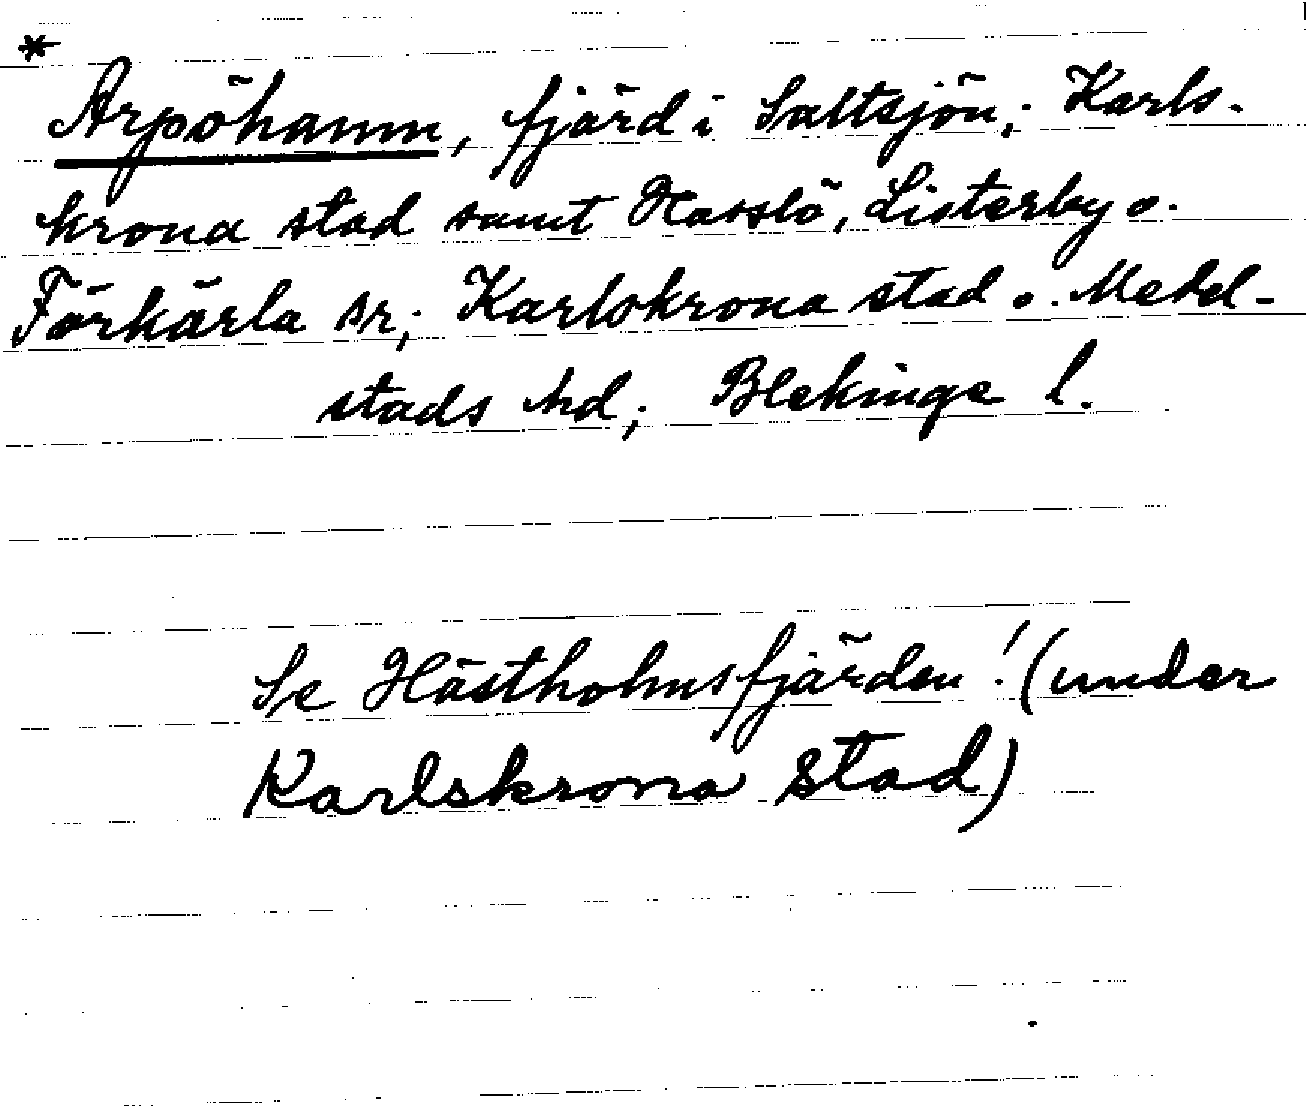 *
Arpöhamn, fjärd i Saltsjön; Karls-
krona stad samt Hasslö, Listerby o.
Förkärla sr; Karlskrona stad o. Medel-
stads hd; Blekinge l.
Se Hästholmsfjärden! (under
Karlskrona stad)